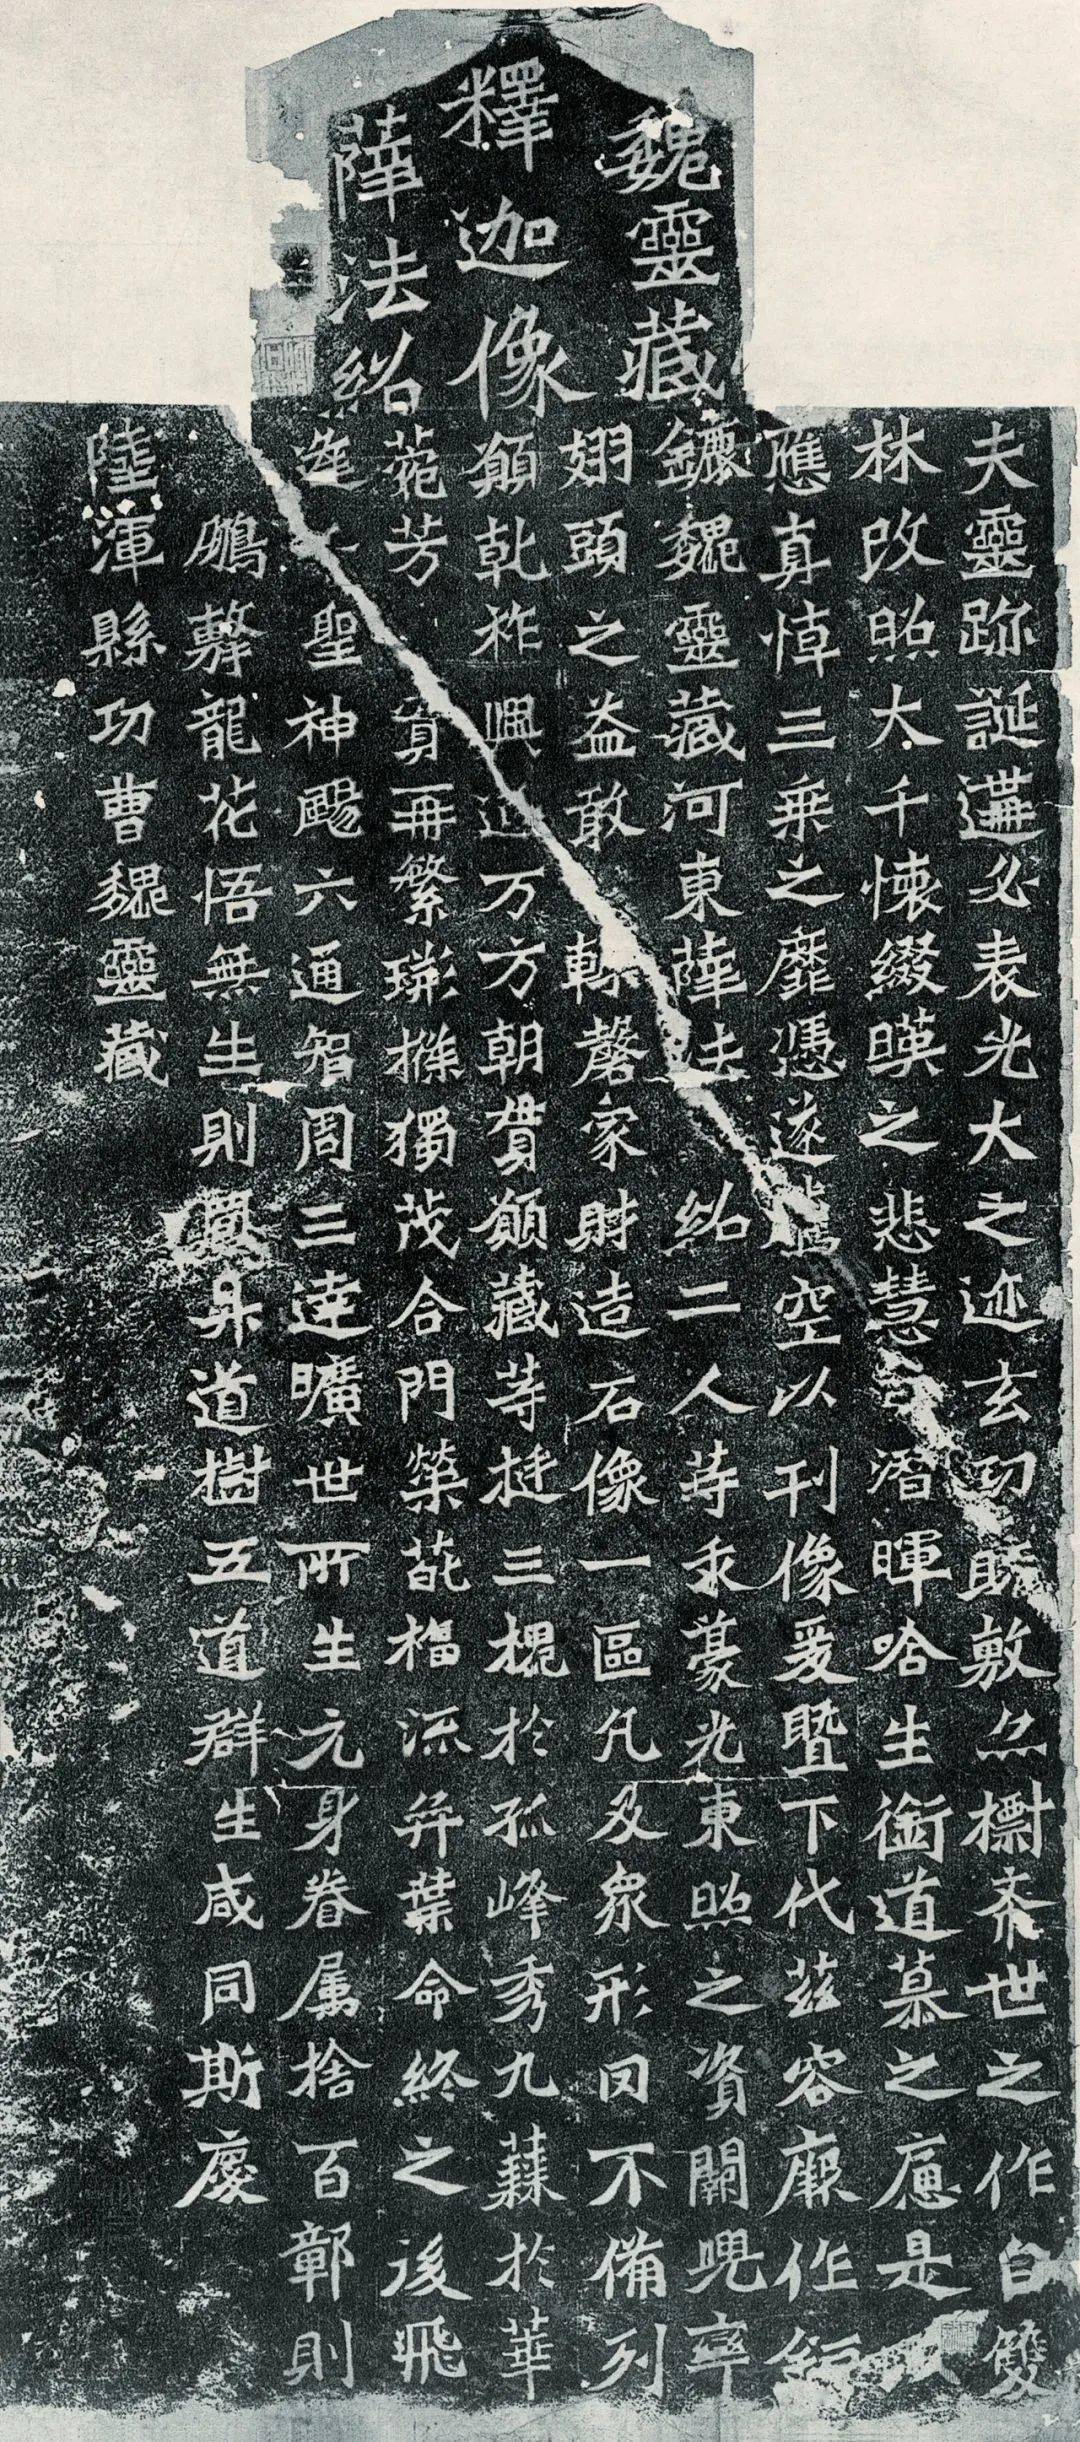 魏靈藏
釋迦像
薛法紹
夫靈跡誕遘必表光大之迹玄功旣敷亦標希世之作自雙
林改照大千懷綴暎之悲慧日潛暉哈生銜道慕之應是以
應真悼三乘之靡憑遂騰空以刊像爰暨下代茲容厥作鉅
鹿魏靈藏河東薛法紹二人等求豪光東照之資闕兜率
翅頭之益敢輒磬家財造石像一區凡及眾形罔不備列
願乾祚興延万方朝貫願藏等挺三槐於孤峰秀九蕀於華
菀芳實再繁璀㯹獨茂合門榮葩福流弈葉命終之後飛
逢千聖神颺六通智周三達曠世所生元身眷属捨百鄣則
鵬擊龍花悟無生則鳳昇道樹五道群生咸同斯慶
陸渾縣功曹魏靈藏